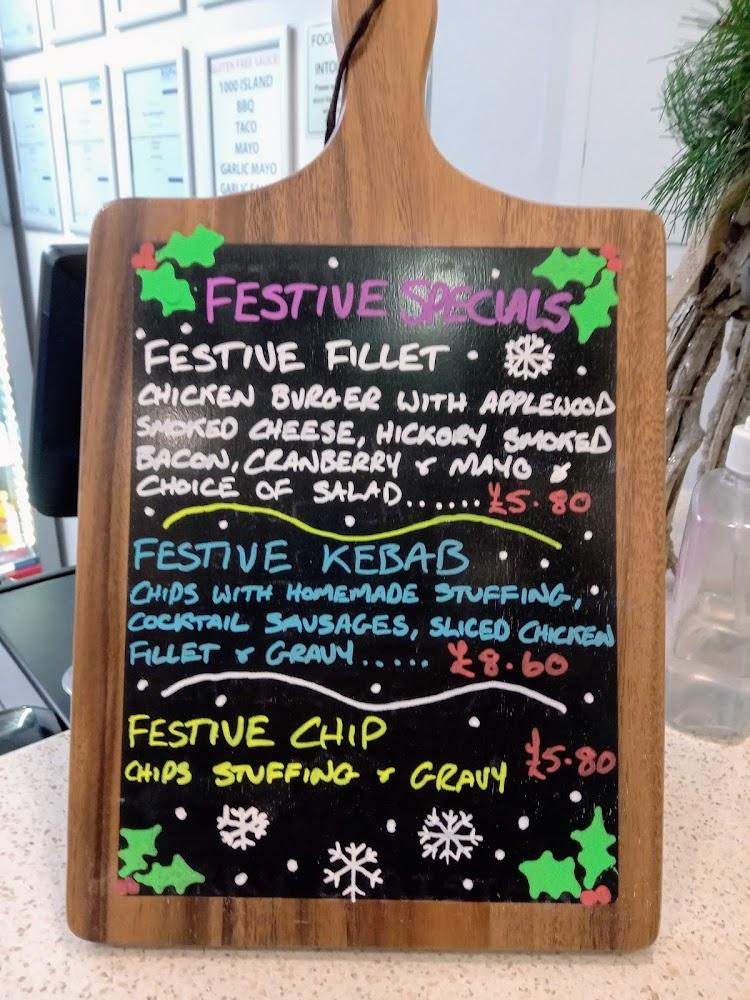 GLUTEN FREE SAUCES
1000 ISLAND
BBQ
TACO
MAYO
GARLIC MAYO
GARLIC
FOOD
INTO
FESTIVE SPECIALS
FESTIVE FILLET
CHICKEN BURGER WITH APPLEWOOD
SMOKED CHEESE, HICKORY SMOKED
BACON, CRANBERRY & MAYO &
CHOICE OF SALAD....... £5.80
FESTIVE KEBAB
CHIPS WITH HOMEMADE STUFFING,
COCKTAIL SAUSAGES, SLICED CHICKEN
FILLET & GRAVY...... £8.60
FESTIVE CHIP
CHIPS STUFFING & GRAVY £5.80